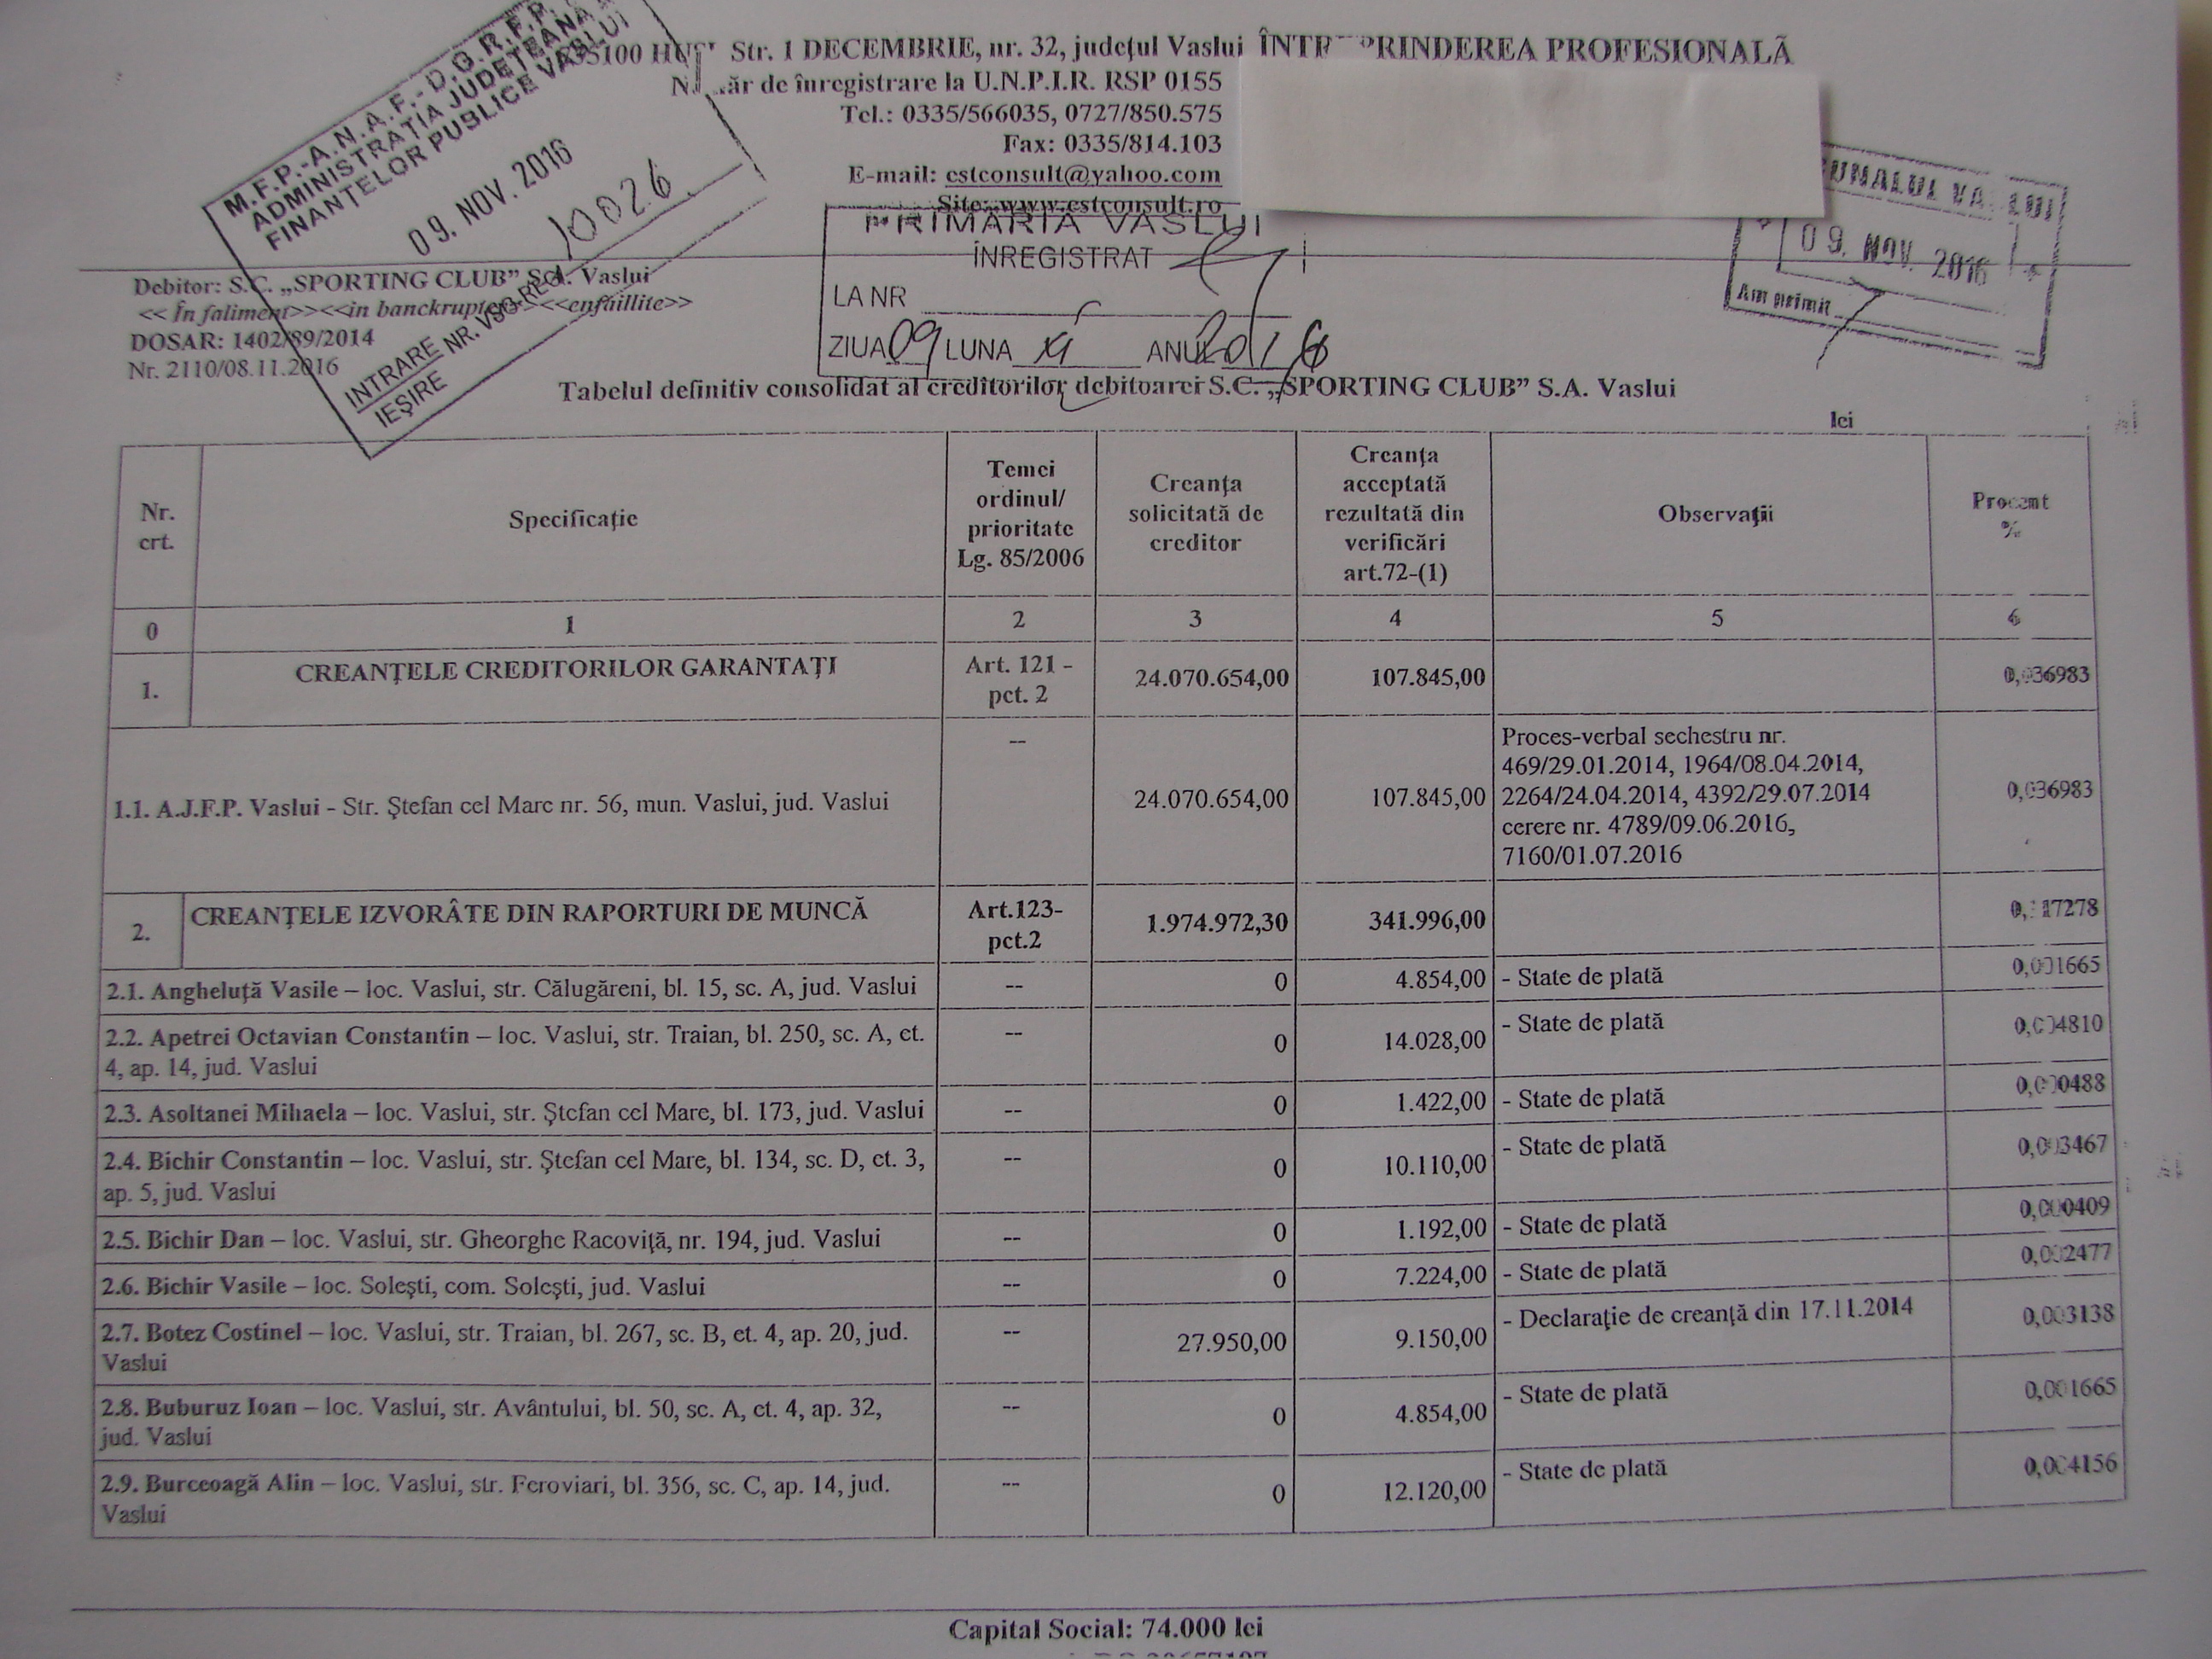 Str. 1 DECEMBRIE, nr. 32, județul Vaslui PRINDEREA PROFESIONALĂ
de înregistrare la U.N.P.I.R. RSP 0155
Tel.: 0335/566035, 0727/850.575
Fax: 0335/814.103
E-mail: cstconsult@yahoo.com
Site: www.cstconsult.ro
M.F.P.-A.N.A.F.-D.G.R.F.P.
ADMINISTRAȚIA JUDEȚEANĂ
FINANȚELOR PUBLICE VASLUI
09. NOV. 2016
10026
INTRARE NR. VSG-REG.
IEȘIRE
PRIMĂRIA VASLUI
ÎNREGISTRAT
LA NR
ZIUA 09 LUNA XI ANUL 2016
09. NOV. 2016
Am primit
Debitor: S.C. „SPORTING CLUB” S.A. Vaslui
<< În faliment>><<in banckruptcy>><<enfaillite>>
DOSAR: 1402/89/2014
Nr. 2110/08.11.2016
Tabelul definitiv consolidat al creditorilor debitoarei S.C. „SPORTING CLUB” S.A. Vaslui
lei
Nr. crt.
Specificaţie
Temei ordinul/ prioritate Lg. 85/2006
Creanţa solicitată de creditor
Creanţa acceptată rezultată din verificări art.72-(1)
Observaţii
Procent %
0 1 2 3 4 5 6
1. CREANŢELE CREDITORILOR GARANTAŢI Art. 121 - pct. 2 24.070.654,00 107.845,00 0,036983
1.1. A.J.F.P. Vaslui - Str. Ştefan cel Mare nr. 56, mun. Vaslui, jud. Vaslui -- 24.070.654,00 107.845,00
Proces-verbal sechestru nr.
469/29.01.2014, 1964/08.04.2014,
2264/24.04.2014, 4392/29.07.2014
cerere nr. 4789/09.06.2016,
7160/01.07.2016
0,036983
2. CREANŢELE IZVORÂTE DIN RAPORTURI DE MUNCĂ Art.123- pct.2 1.974.972,30 341.996,00 0,117278
2.1. Angheluţă Vasile – loc. Vaslui, str. Călugăreni, bl. 15, sc. A, jud. Vaslui -- 0 4.854,00 - State de plată 0,001665
2.2. Apetrei Octavian Constantin – loc. Vaslui, str. Traian, bl. 250, sc. A, et.
4, ap. 14, jud. Vaslui -- 0 14.028,00 - State de plată 0,004810
2.3. Asoltanei Mihaela – loc. Vaslui, str. Ştefan cel Mare, bl. 173, jud. Vaslui -- 0 1.422,00 - State de plată 0,000488
2.4. Bichir Constantin – loc. Vaslui, str. Ştefan cel Mare, bl. 134, sc. D, et. 3,
ap. 5, jud. Vaslui -- 0 10.110,00 - State de plată 0,003467
2.5. Bichir Dan – loc. Vaslui, str. Gheorghe Racoviţă, nr. 194, jud. Vaslui -- 0 1.192,00 - State de plată 0,000409
2.6. Bichir Vasile – loc. Soleşti, com. Soleşti, jud. Vaslui -- 0 7.224,00 - State de plată 0,002477
2.7. Botez Costinel – loc. Vaslui, str. Traian, bl. 267, sc. B, et. 4, ap. 20, jud.
Vaslui -- 27.950,00 9.150,00 - Declaraţie de creanţă din 17.11.2014 0,003138
2.8. Buburuz Ioan – loc. Vaslui, str. Avântului, bl. 50, sc. A, et. 4, ap. 32,
jud. Vaslui -- 0 4.854,00 - State de plată 0,001665
2.9. Burceoagă Alin – loc. Vaslui, str. Feroviari, bl. 356, sc. C, ap. 14, jud.
Vaslui -- 0 12.120,00 - State de plată 0,004156
Capital Social: 74.000 lei